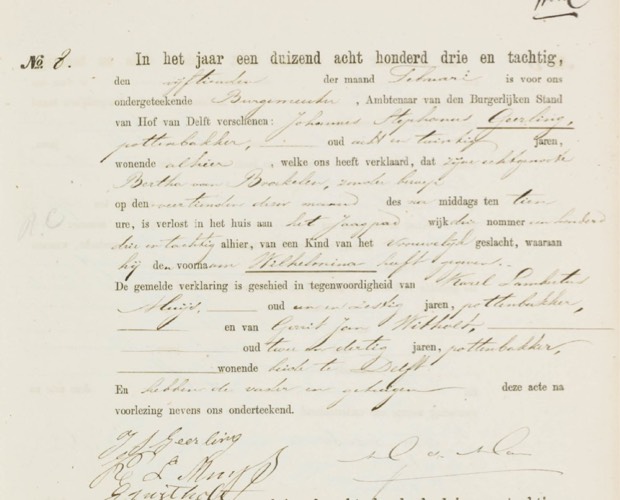 No. 8.
In het jaar een duizend acht honderd drie en tachtig,
den vijftienden der maand Februari is voor ons
ondergeteekende Burgemeester, Ambtenaar van den Burgerlijken Stand
van Hof van Delft verschenen: Johannes Stephanus Geerling,
pottenbakker, oud acht en twintig jaren,
wonende alhier, welke ons heeft verklaard, dat zijne echtgenoote
Bertha van Broekelen, zonder beroep
op den veertienden dezer maand des middags ten tien
ure, is verlost in het huis aan het Jaagpad wijk nommer een honderd
drie en tachtig alhier, van een Kind van het vrouwelijk geslacht, waaraan
hij den voornaam Wilhelmina heeft gegeven.
De gemelde verklaring is geschied in tegenwoordigheid van Karel Lambertus
Muijs, oud een en veertig jaren, pottenbakker,
en van Gerrit Jan Witholt,
oud twee en dertig jaren, pottenbakker,
wonende beide te Delft
En hebben de vader en getuigen deze acte na
voorlezing nevens ons onderteekend.
J S Geerling
K L Muijs
G J Witholt